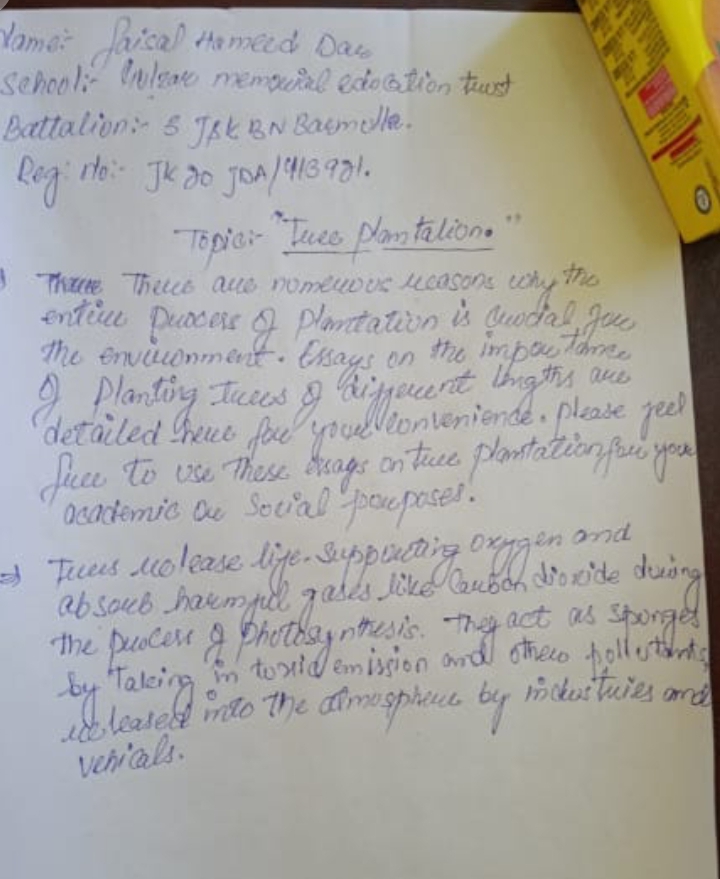 Name:- Faisal Hameed Dar
School:- Gulzar memorial education trust
Battalion:- 3 J&K BN Baramulla.
Reg: No:- JK 20 JDA/413921.
Topic:- "Tree plantation."
There There are nomerous reasons why the
entire process of plantation is crucial for
the environment. Essays on the importance
of planting trees of different lengths are
detailed here for your convenience. please feel
free to use these essays on tree plantation for your
academic or social pourposes.
Trees release life-supporting oxygen and
absorb harmful gases like Carbon dioxide during
the process of photosynthesis. They act as sponges
by taking in toxic emission and other pollutants,
released into the atmosphere by industries and
vehicals.